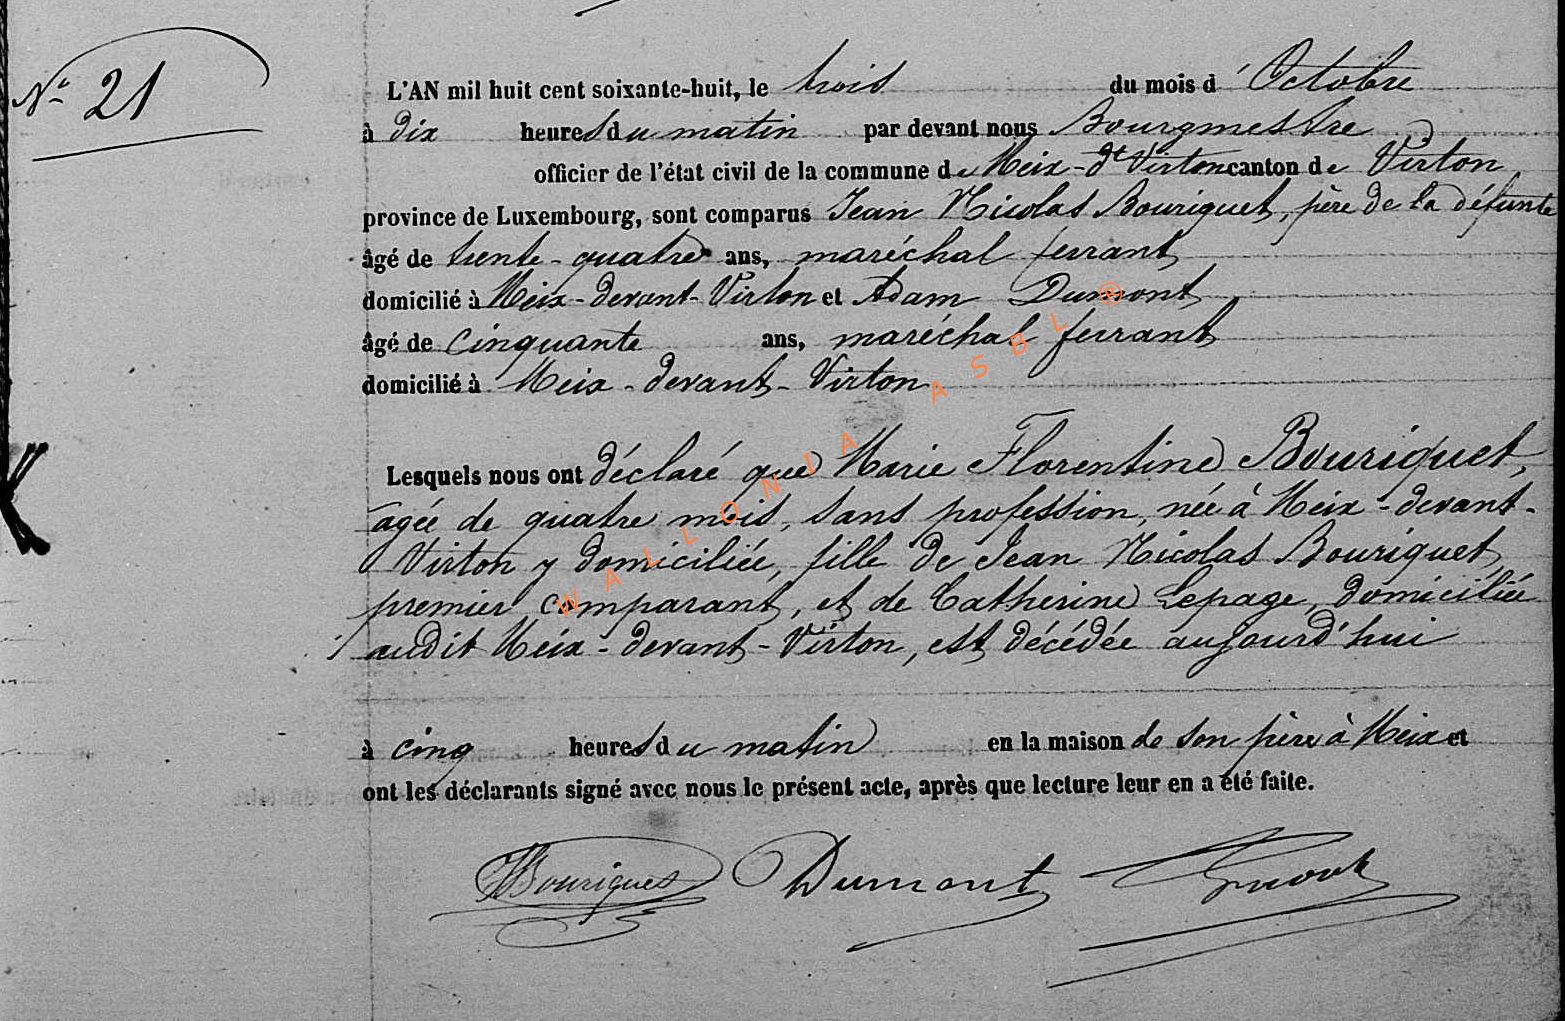 N° 21
L'AN mil huit cent soixante-huit, le trois du mois d'Octobre
à dix heures du matin par devant nous Bourgmestre
officier de l'état civil de la commune de Meix-dt Virton canton de Virton
province de Luxembourg, sont comparus Jean Nicolas Bouriquet, père de la défunte
âgé de trente-quatre ans, maréchal ferrant
domicilié à Meix-devant-Virton et Adam Dumont
âgé de cinquante ans, maréchal ferrant
domicilié à Meix-devant-Virton
Lesquels nous ont déclaré que Marie Florentine Bouriquet,
agée de quatre mois, sans profession, née à Meix-devant-
Virton y domiciliée, fille de Jean Nicolas Bouriquet
premier comparant, et de Catherine Lepage, domiciliée
audit Meix-devant-Virton, est décédée aujourd'hui
à cinq heures du matin en la maison de son père à Meix et
ont les déclarants signé avec nous le présent acte, après que lecture leur en a été faite.
Dumont
WALLONIA ASBL ®